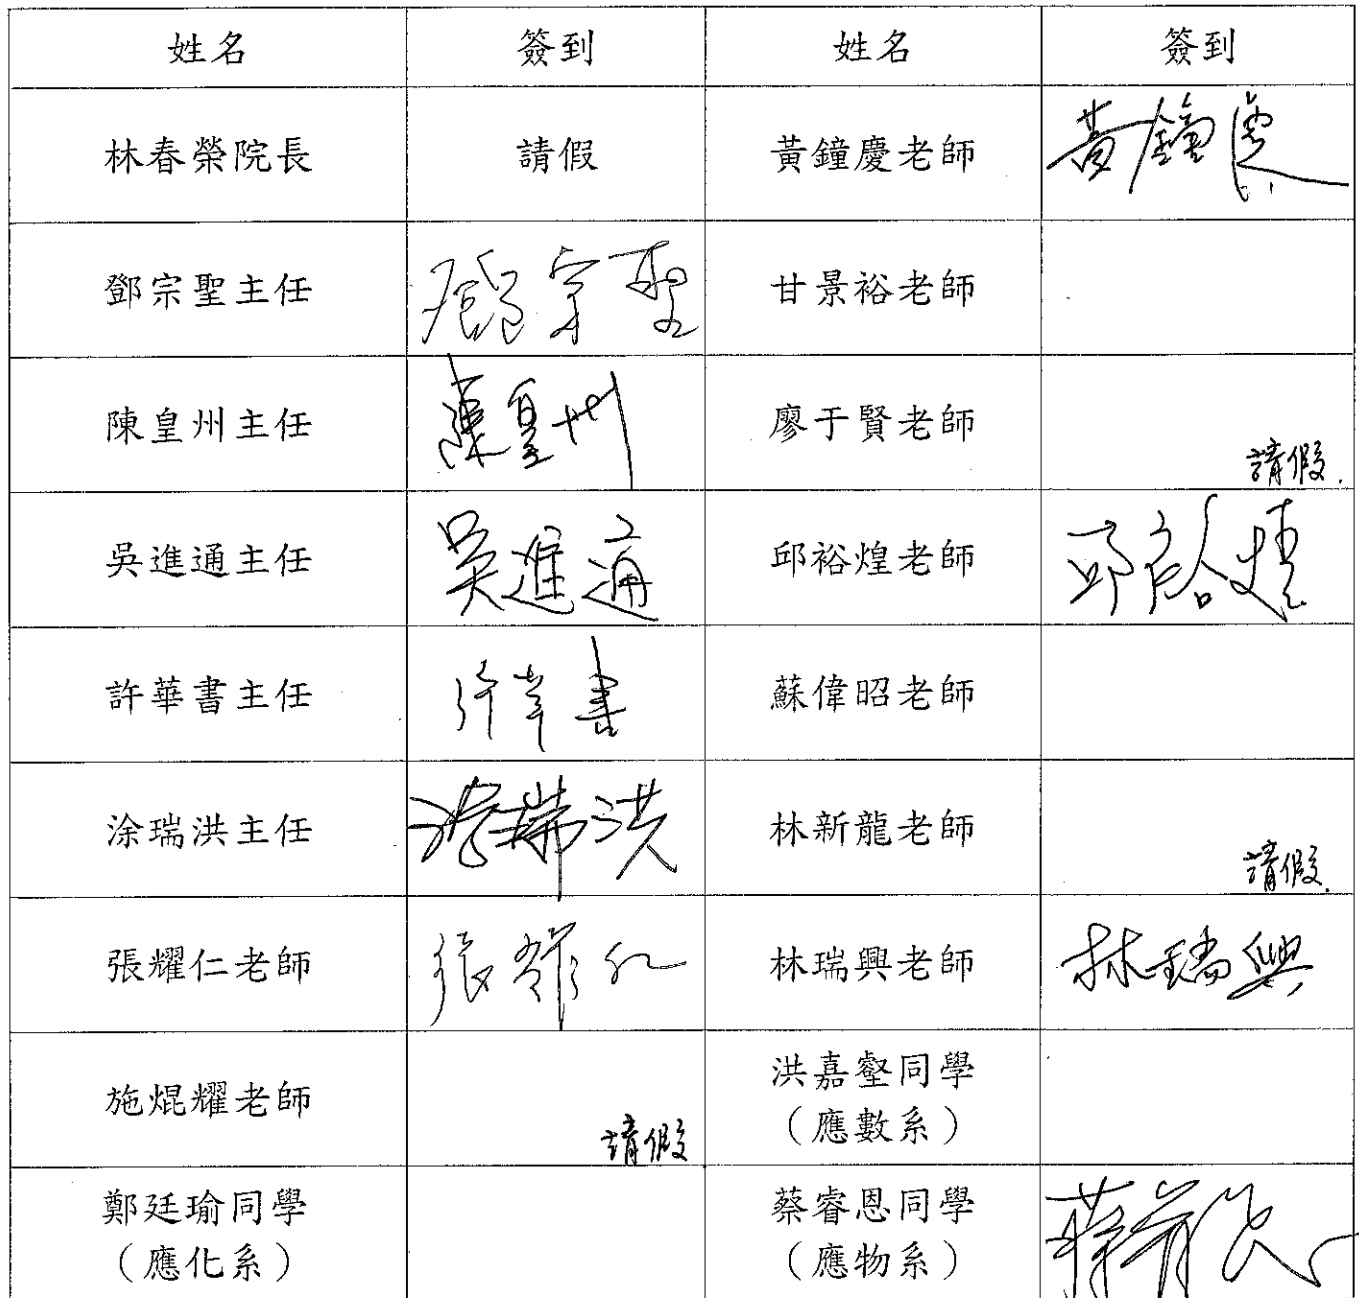 姓名 簽到 姓名 簽到
林春榮院長 請假 黃鐘慶老師 黃鐘慶
鄧宗聖主任 鄧宗聖 甘景裕老師
陳皇州主任 陳皇州 廖于賢老師 請假.
吳進通主任 吳進通 邱裕煌老師 邱裕煌
許華書主任 許華書 蘇偉昭老師
涂瑞洪主任 涂瑞洪 林新龍老師 請假.
張耀仁老師 張耀仁 林瑞興老師 林瑞興
施焜耀老師 請假 洪嘉壑同學
（應數系）
鄭廷瑜同學 蔡睿恩同學 蔡睿恩
（應化系） （應物系）